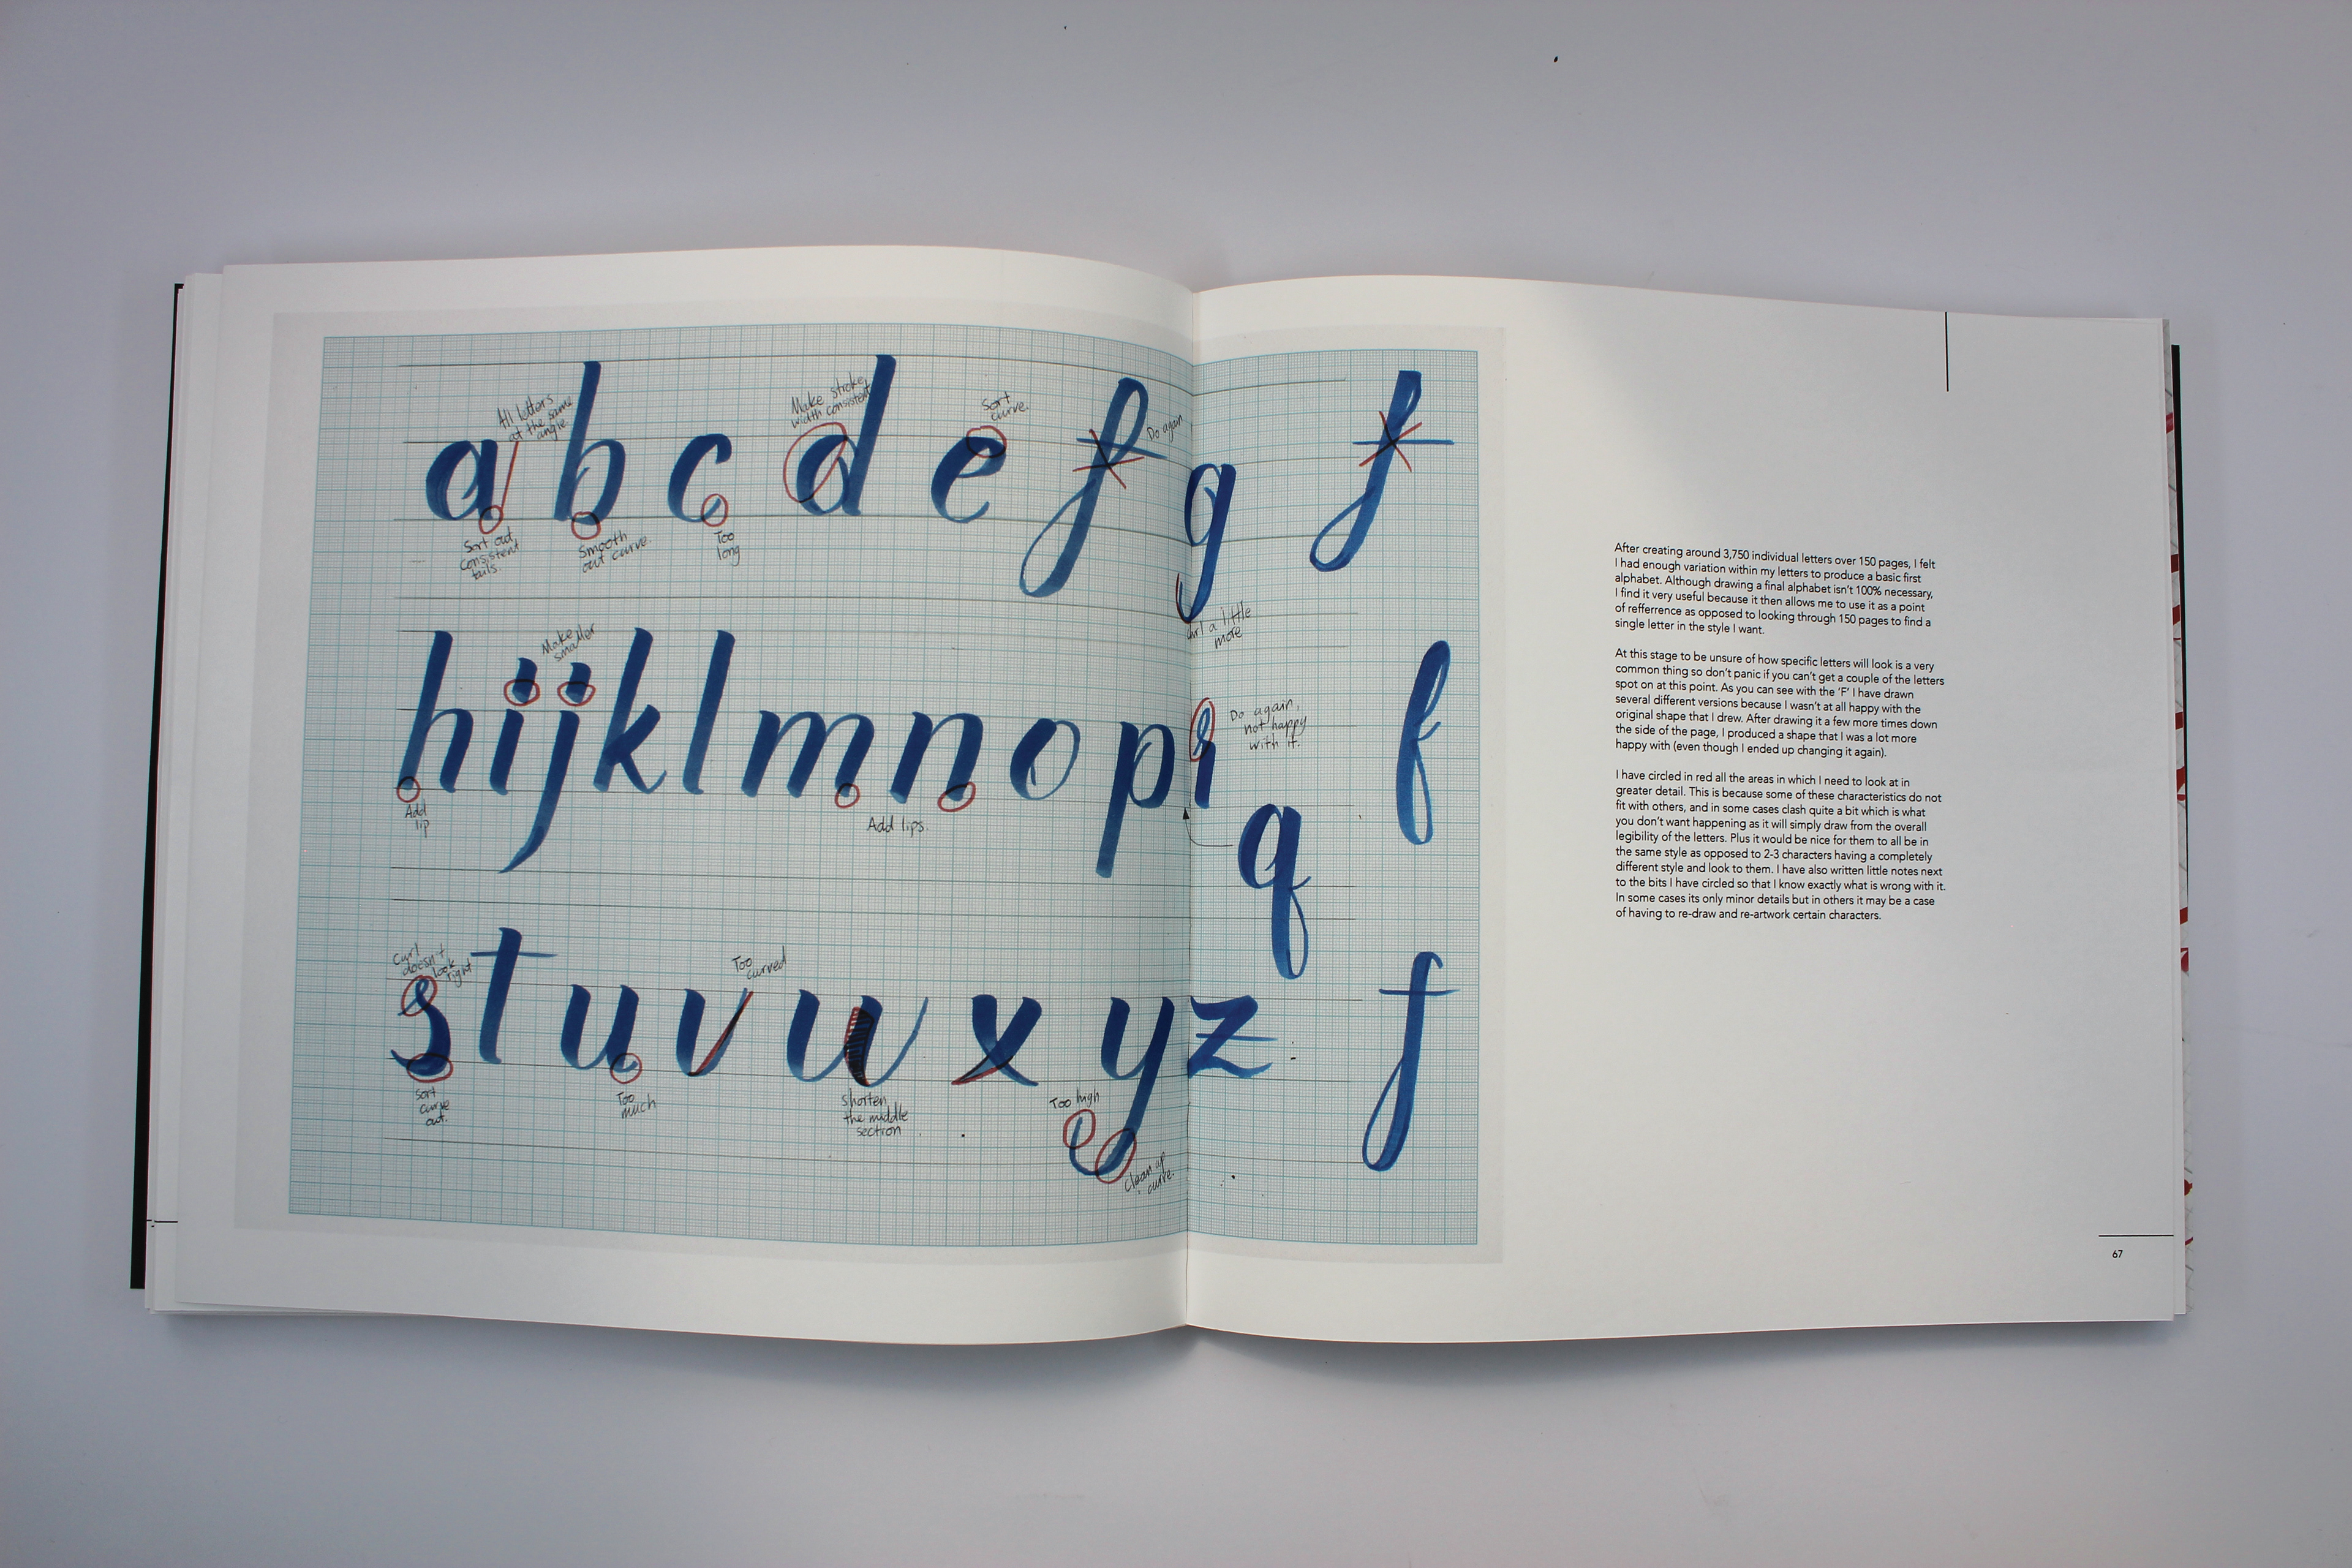 All letters
at the same
angle.
Make stroke
width consistent
Sort
curve.
Do again
a b c d e f g f
Sort out
consistent
tails.
Smooth
out curve.
Too
long
a little
more
Make
smaller
h i j k l m n o p r f
Do again,
not happy
with it.
q
Add
lip
Add lips.
Curl
doesn't
look
right
Too
curved
s t u v w x y z f
Sort
curve
out.
Too
much
shorten
the middle
section
Too high
Clean up
curve.
After creating around 3,750 individual letters over 150 pages, I felt
I had enough variation within my letters to produce a basic first
alphabet. Although drawing a final alphabet isn't 100% necessary,
I find it very useful because it then allows me to use it as a point
of refferrence as opposed to looking through 150 pages to find a
single letter in the style I want.
At this stage to be unsure of how specific letters will look is a very
common thing so don't panic if you can't get a couple of the letters
spot on at this point. As you can see with the 'F' I have drawn
several different versions because I wasn't at all happy with the
original shape that I drew. After drawing it a few more times down
the side of the page, I produced a shape that I was a lot more
happy with (even though I ended up changing it again).
I have circled in red all the areas in which I need to look at in
greater detail. This is because some of these characteristics do not
fit with others, and in some cases clash quite a bit which is what
you don't want happening as it will simply draw from the overall
legibility of the letters. Plus it would be nice for them to all be in
the same style as opposed to 2-3 characters having a completely
different style and look to them. I have also written little notes next
to the bits I have circled so that I know exactly what is wrong with it.
In some cases its only minor details but in others it may be a case
of having to re-draw and re-artwork certain characters.
67